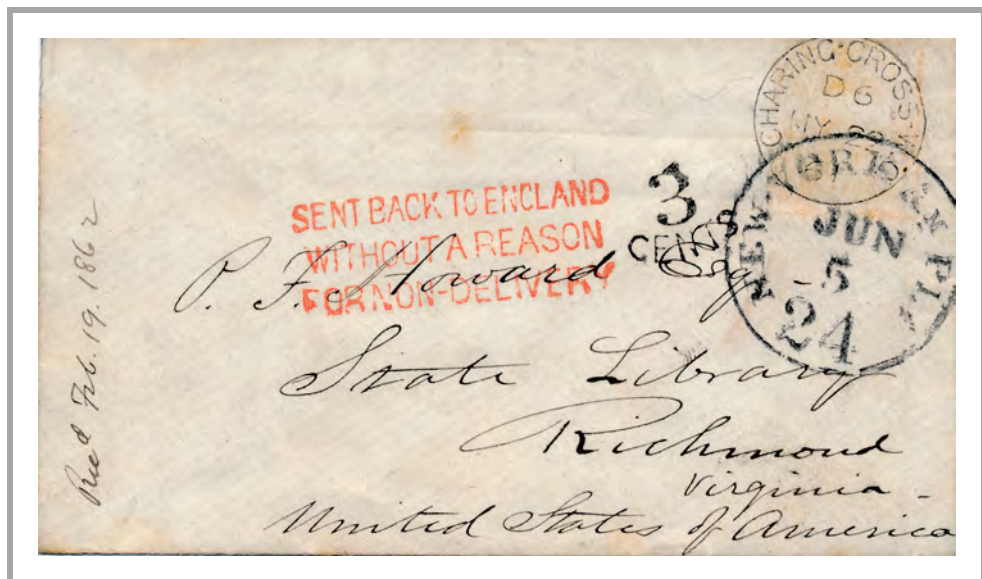 CHARING·CROSS·W
D6
MY 22
NEW-YORK AM PKT
JUN
5
24
3
CENTS
SENT BACK TO ENGLAND
WITHOUT A REASON
FOR NON-DELIVERY
P. F. Howard Esq
State Library
Richmond
Virginia
United States of America
Recd Feb. 19. 1862